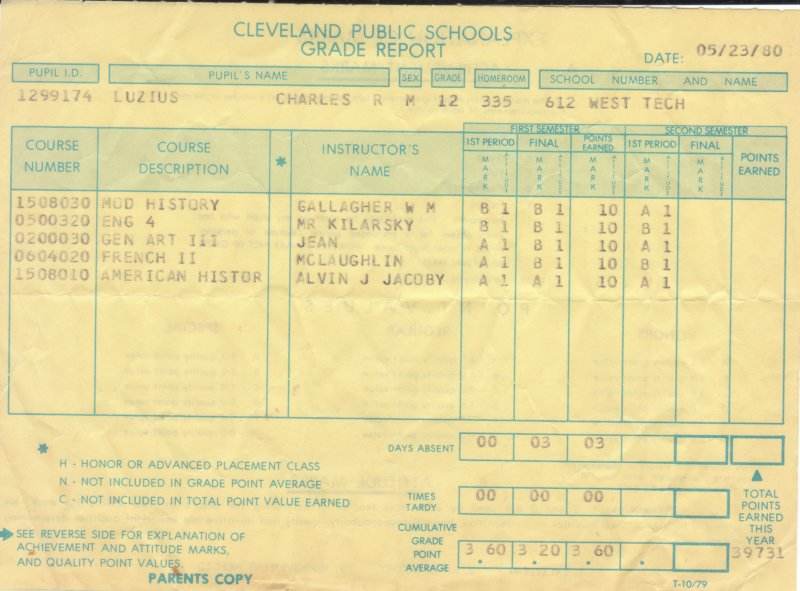 CLEVELAND PUBLIC SCHOOLS
GRADE REPORT
DATE: 05/23/80
PUPIL I.D. PUPIL'S NAME SEX GRADE HOMEROOM SCHOOL NUMBER AND NAME
1299174 LUZIUS CHARLES R M 12 335 612 WEST TECH
FIRST SEMESTER SECOND SEMESTER
COURSE NUMBER COURSE DESCRIPTION * INSTRUCTOR'S NAME 1ST PERIOD FINAL POINTS EARNED 1ST PERIOD FINAL POINTS EARNED
MARK ATTITUDE MARK ATTITUDE MARK ATTITUDE MARK ATTITUDE MARK ATTITUDE
1508030 MOD HISTORY GALLAGHER W M B 1 B 1 10 A 1
0500320 ENG 4 MR KILARSKY B 1 B 1 10 B 1
0200030 GEN ART III JEAN A 1 B 1 10 A 1
0604020 FRENCH II MCLAUGHLIN A 1 B 1 10 B 1
1508010 AMERICAN HISTOR ALVIN J JACOBY A 1 A 1 10 A 1
DAYS ABSENT 00 03 03
*
H - HONOR OR ADVANCED PLACEMENT CLASS
N - NOT INCLUDED IN GRADE POINT AVERAGE
C - NOT INCLUDED IN TOTAL POINT VALUE EARNED
TIMES TARDY 00 00 00
TOTAL POINTS EARNED THIS YEAR
39731
CUMULATIVE GRADE POINT AVERAGE 3.60 3.20 3.60 .
SEE REVERSE SIDE FOR EXPLANATION OF
ACHIEVEMENT AND ATTITUDE MARKS,
AND QUALITY POINT VALUES.
PARENTS COPY
T-10/79